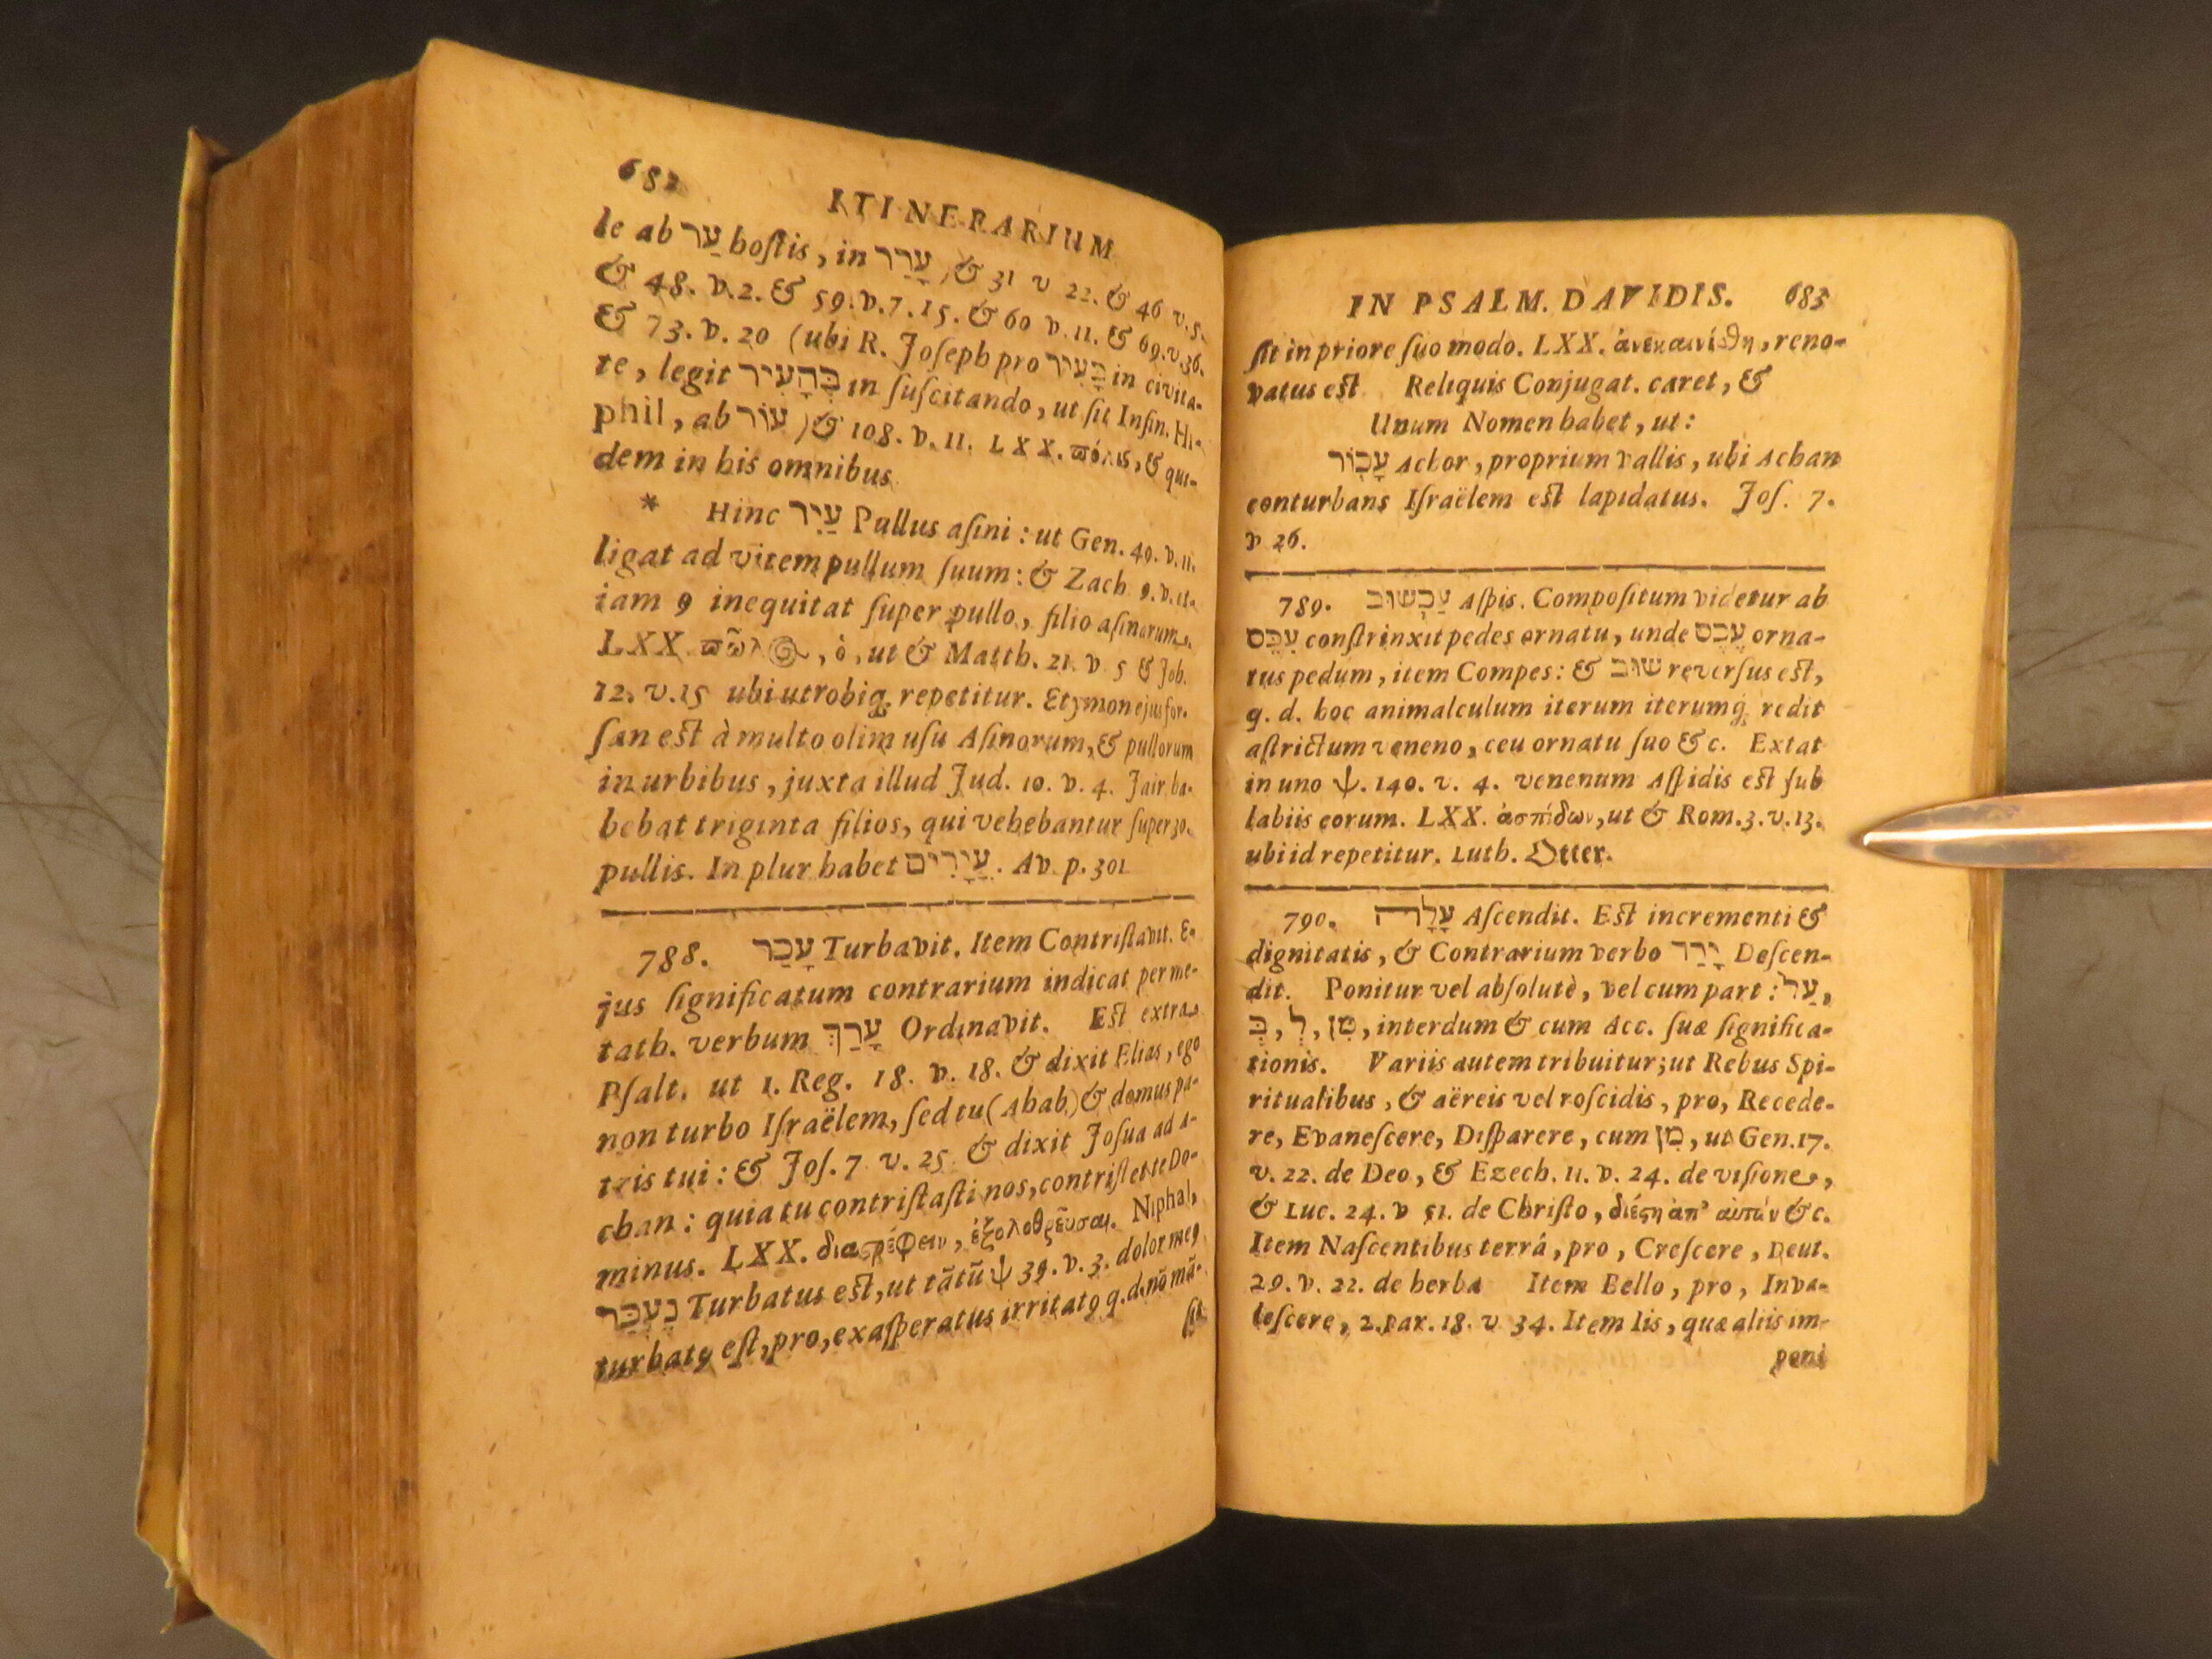 682 ITINERARIUM
le ab עַר hoſtis, in עָרַר ) & 31 v 22. & 46 v. 5.
& 48. v. 2. & 59. v. 7. 15. & 60 v. 11. & 69. v. 36.
& 73. v. 20 (ubi R. Joſeph pro בָּעִיר in civita-
te, legit בְּהָעִיר in ſuſcitando, ut ſit Infin. Hi-
phil, ab עוֹר ) & 108. v. 11. LXX. πόλις, & qui-
dem in his omnibus.
* Hinc עַיִר Pullus aſini: ut Gen. 49. v. 11.
ligat ad vitem pullum ſuum: & Zach 9. v.
iam 9 inequitat ſuper pullo, filio aſinarum.
LXX. πῶλος, ὁ, ut & Matth. 21. v. 5 & Joh.
12. v. 15 ubi utrobiq; repetitur. Etymon ejus for-
ſan eſt à multo olim uſu Aſinorum, & pullorum
in urbibus, juxta illud Jud. 10. v. 4. Jair ha-
bebat triginta filios, qui vehebantur ſuper 30.
pullis. In plur habet עֲיָרִים. Av. p. 301
788. עָכַר Turbavit. Item Contriſtavit. E-
jus ſignificatum contrarium indicat per me-
tath. verbum עָרַךְ Ordinavit. Eſt extra
Pſalt. ut 1. Reg. 18. v. 18. & dixit Elias, ego
non turbo Iſraëlem, ſed tu (Ahab) & domus pa-
tris tui: & Joſ. 7 v. 25. & dixit Joſua ad A-
chan: quia tu contriſtaſti nos, contriſtet te Do-
minus. LXX. διαστρέφειν, ἐξολοθρεῦσαι. Niphal,
נֶעְכַּר Turbatus eſt, ut tãtũ ψ 39. v. 3. dolor meꝰ
turbatꝰ eſt, pro, exaſperatus irritatꝰ q. d. nõ mã-
ſit
IN PSALM. DAVIDIS. 683
ſit in priore ſuo modo. LXX. ἀνεκαινίσθη, reno-
vatus eſt Reliquis Conjugat. caret, &
Unum Nomen habet, ut:
עָכוֹר Achor, proprium vallis, ubi Achan
conturbans Iſraëlem eſt lapidatus. Joſ. 7.
v 26.
789. עַכְשׁוּב Aſpis. Compoſitum videtur ab
עָכַס conſtrinxit pedes ornatu, unde עֶכֶס orna-
tus pedum, item Compes: & שׁוּב reverſus eſt,
q. d. hoc animalculum iterum iterumq; redit
aſtrictum veneno, ceu ornatu ſuo &c. Extat
in uno ψ. 140. v. 4. venenum Aſpidis eſt ſub
labiis eorum. LXX. ἀσπίδων, ut & Rom. 3. v. 13.
ubi id repetitur. Luth. Otter.
790. עָלָה Aſcendit. Eſt incrementi &
dignitatis, & Contrarium verbo יָרַד Deſcen-
dit. Ponitur vel abſolutè, vel cum part: עַל,
בְּ, לְ, מִן, interdum & cum Acc. ſuæ ſignifica-
tionis. Variis autem tribuitur; ut Rebus Spi-
ritualibus, & aëreis vel roſcidis, pro, Recede-
re, Evaneſcere, Diſparere, cum מִן, ut Gen. 17.
v. 22. de Deo, & Ezech. 11. v. 24. de viſione,
& Luc. 24. v 51. de Chriſto, διέστη ἀπ' αὐτῶν &c.
Item Naſcentibus terrâ, pro, Creſcere, Deut.
29. v. 22. de herba Item Bello, pro, Inva-
leſcere, 2. Par. 18. v 34. Item iis, quæ aliis im-
poni